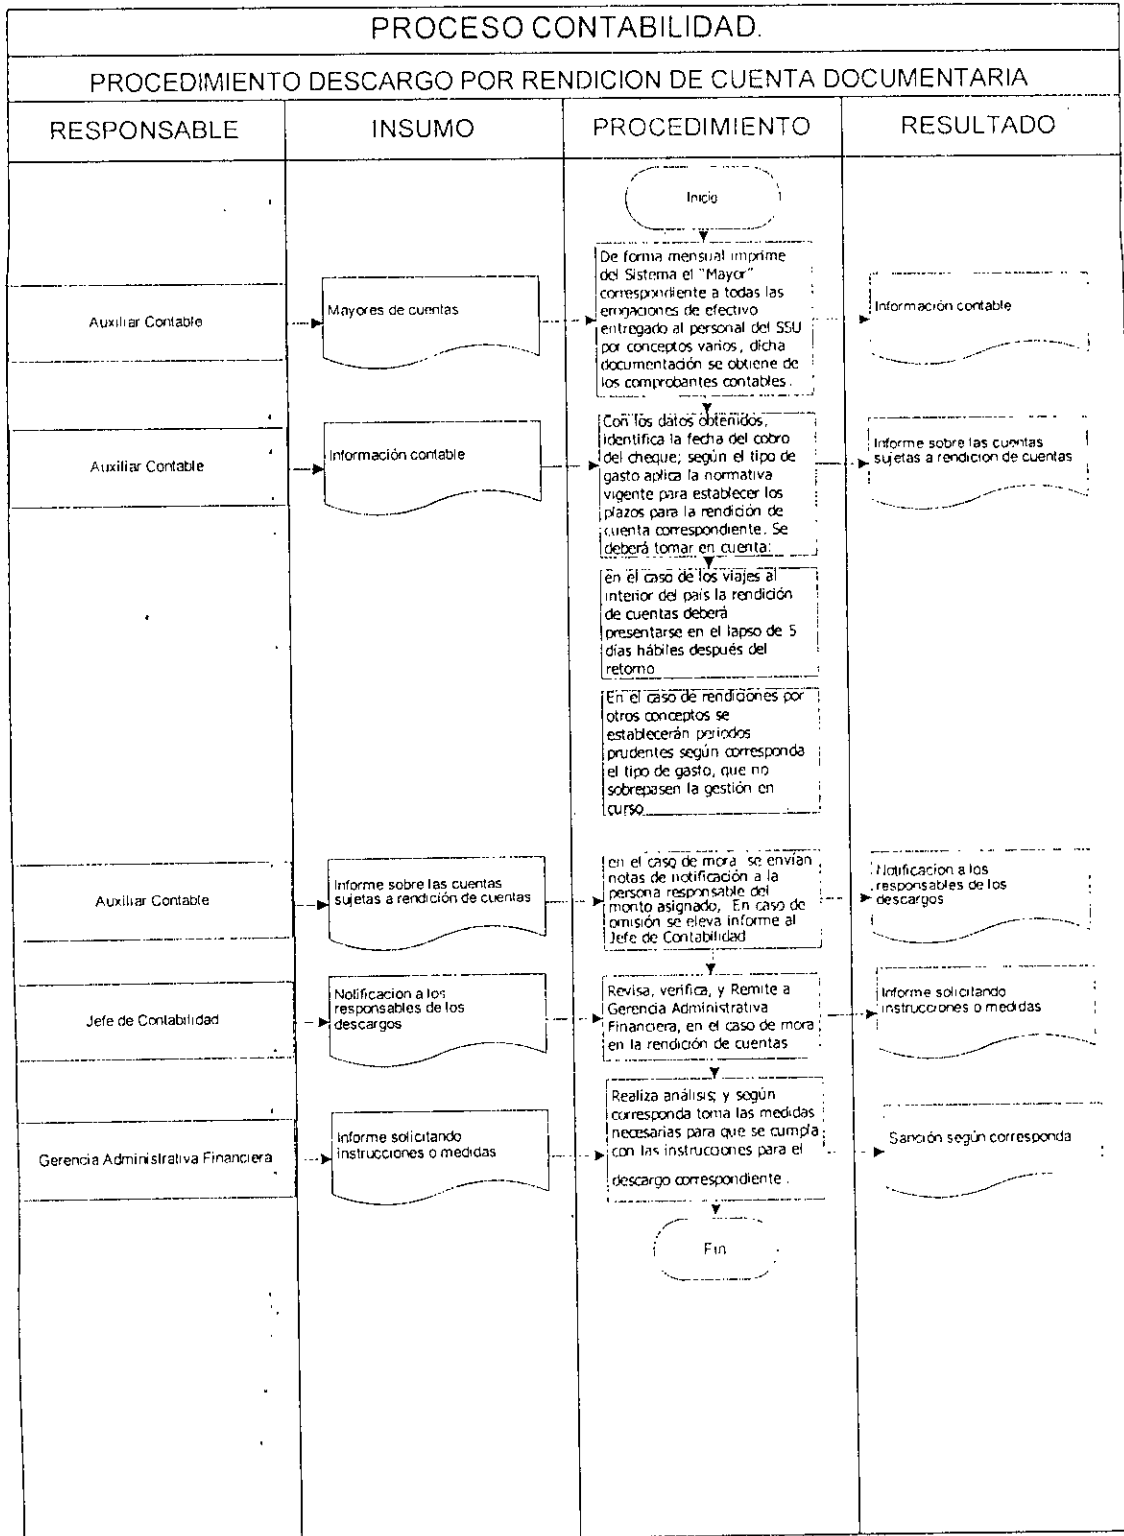 PROCESO CONTABILIDAD.
PROCEDIMIENTO DESCARGO POR RENDICION DE CUENTA DOCUMENTARIA
RESPONSABLE
INSUMO
PROCEDIMIENTO
RESULTADO
Inicio
Auxiliar Contable
Mayores de cuentas
De forma mensual imprime
del Sistema el "Mayor"
correspondiente a todas las
erogaciones de efectivo
entregado al personal del SSU
por conceptos varios, dicha
documentación se obtiene de
los comprobantes contables.
Información contable
Auxiliar Contable
Información contable
Con los datos obtenidos,
identifica la fecha del cobro
del cheque; según el tipo de
gasto aplica la normativa
vigente para establecer los
plazos para la rendición de
cuenta correspondiente. Se
deberá tomar en cuenta:
Informe sobre las cuentas
sujetas a rendicion de cuentas
en el caso de los viajes al
interior del país la rendición
de cuentas deberá
presentarse en el lapso de 5
días hábiles después del
retorno
En el caso de rendiciones por
otros conceptos se
establecerán periodos
prudentes según corresponda
el tipo de gasto, que no
sobrepasen la gestión en
curso
Auxiliar Contable
Informe sobre las cuentas
sujetas a rendición de cuentas
en el caso de mora se envían
notas de notificación a la
persona responsable del
monto asignado, En caso de
omisión se eleva informe al
Jefe de Contabilidad
Notificacion a los
responsables de los
descargos
Jefe de Contabilidad
Notificacion a los
responsables de los
descargos
Revisa, verifica, y Remite a
Gerencia Administrativa
Financiera, en el caso de mora
en la rendición de cuentas
Informe solicitando
instrucciones o medidas
Gerencia Administrativa Financiera
Informe solicitando
instrucciones o medidas
Realiza análisis; y según
corresponda toma las medidas
necesarias para que se cumpla
con las instrucciones para el
descargo correspondiente.
Sanción según corresponda
Fin